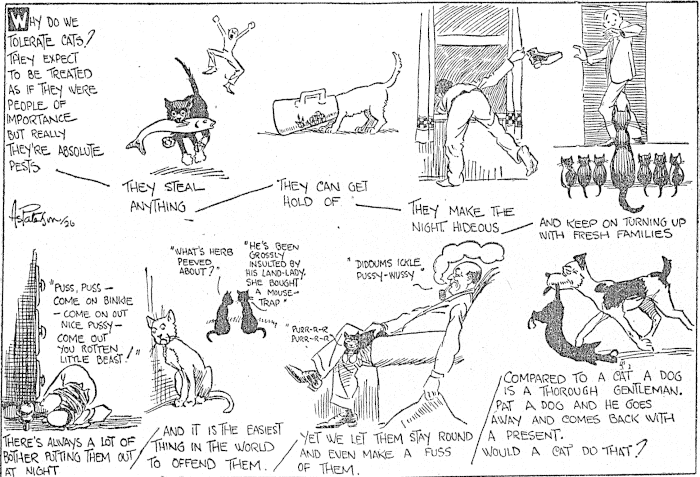 WHY DO WE
TOLERATE CATS?
THEY EXPECT
TO BE TREATED
AS IF THEY WERE
PEOPLE OF
IMPORTANCE
BUT REALLY
THEY'RE ABSOLUTE
PESTS
THEY STEAL
ANYTHING
THEY CAN GET
HOLD OF
THEY MAKE THE
NIGHT HIDEOUS
AND KEEP ON TURNING UP
WITH FRESH FAMILIES
"PUSS, PUSS —
COME ON BINKIE
— COME ON OUT
NICE PUSSY —
COME OUT
YOU ROTTEN
LITTLE BEAST!"
THERE'S ALWAYS A LOT OF
BOTHER PUTTING THEM OUT
AT NIGHT
"WHAT'S HERB
PEEVED
ABOUT?"
"HE'S BEEN
GROSSLY
INSULTED BY
HIS LAND-LADY.
SHE BOUGHT
A MOUSE-
TRAP"
AND IT IS THE EASIEST
THING IN THE WORLD
TO OFFEND THEM.
"DIDDUMS ICKLE
PUSSY-WUSSY"
"PURR-R-R
PURR-R-R"
YET WE LET THEM STAY ROUND
AND EVEN MAKE A FUSS
OF THEM.
COMPARED TO A CAT A DOG
IS A THOROUGH GENTLEMAN.
PAT A DOG AND HE GOES
AWAY AND COMES BACK WITH
A PRESENT.
WOULD A CAT DO THAT?